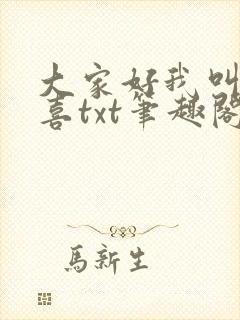 大家好我叫
喜txt笔趣阁
馬新生